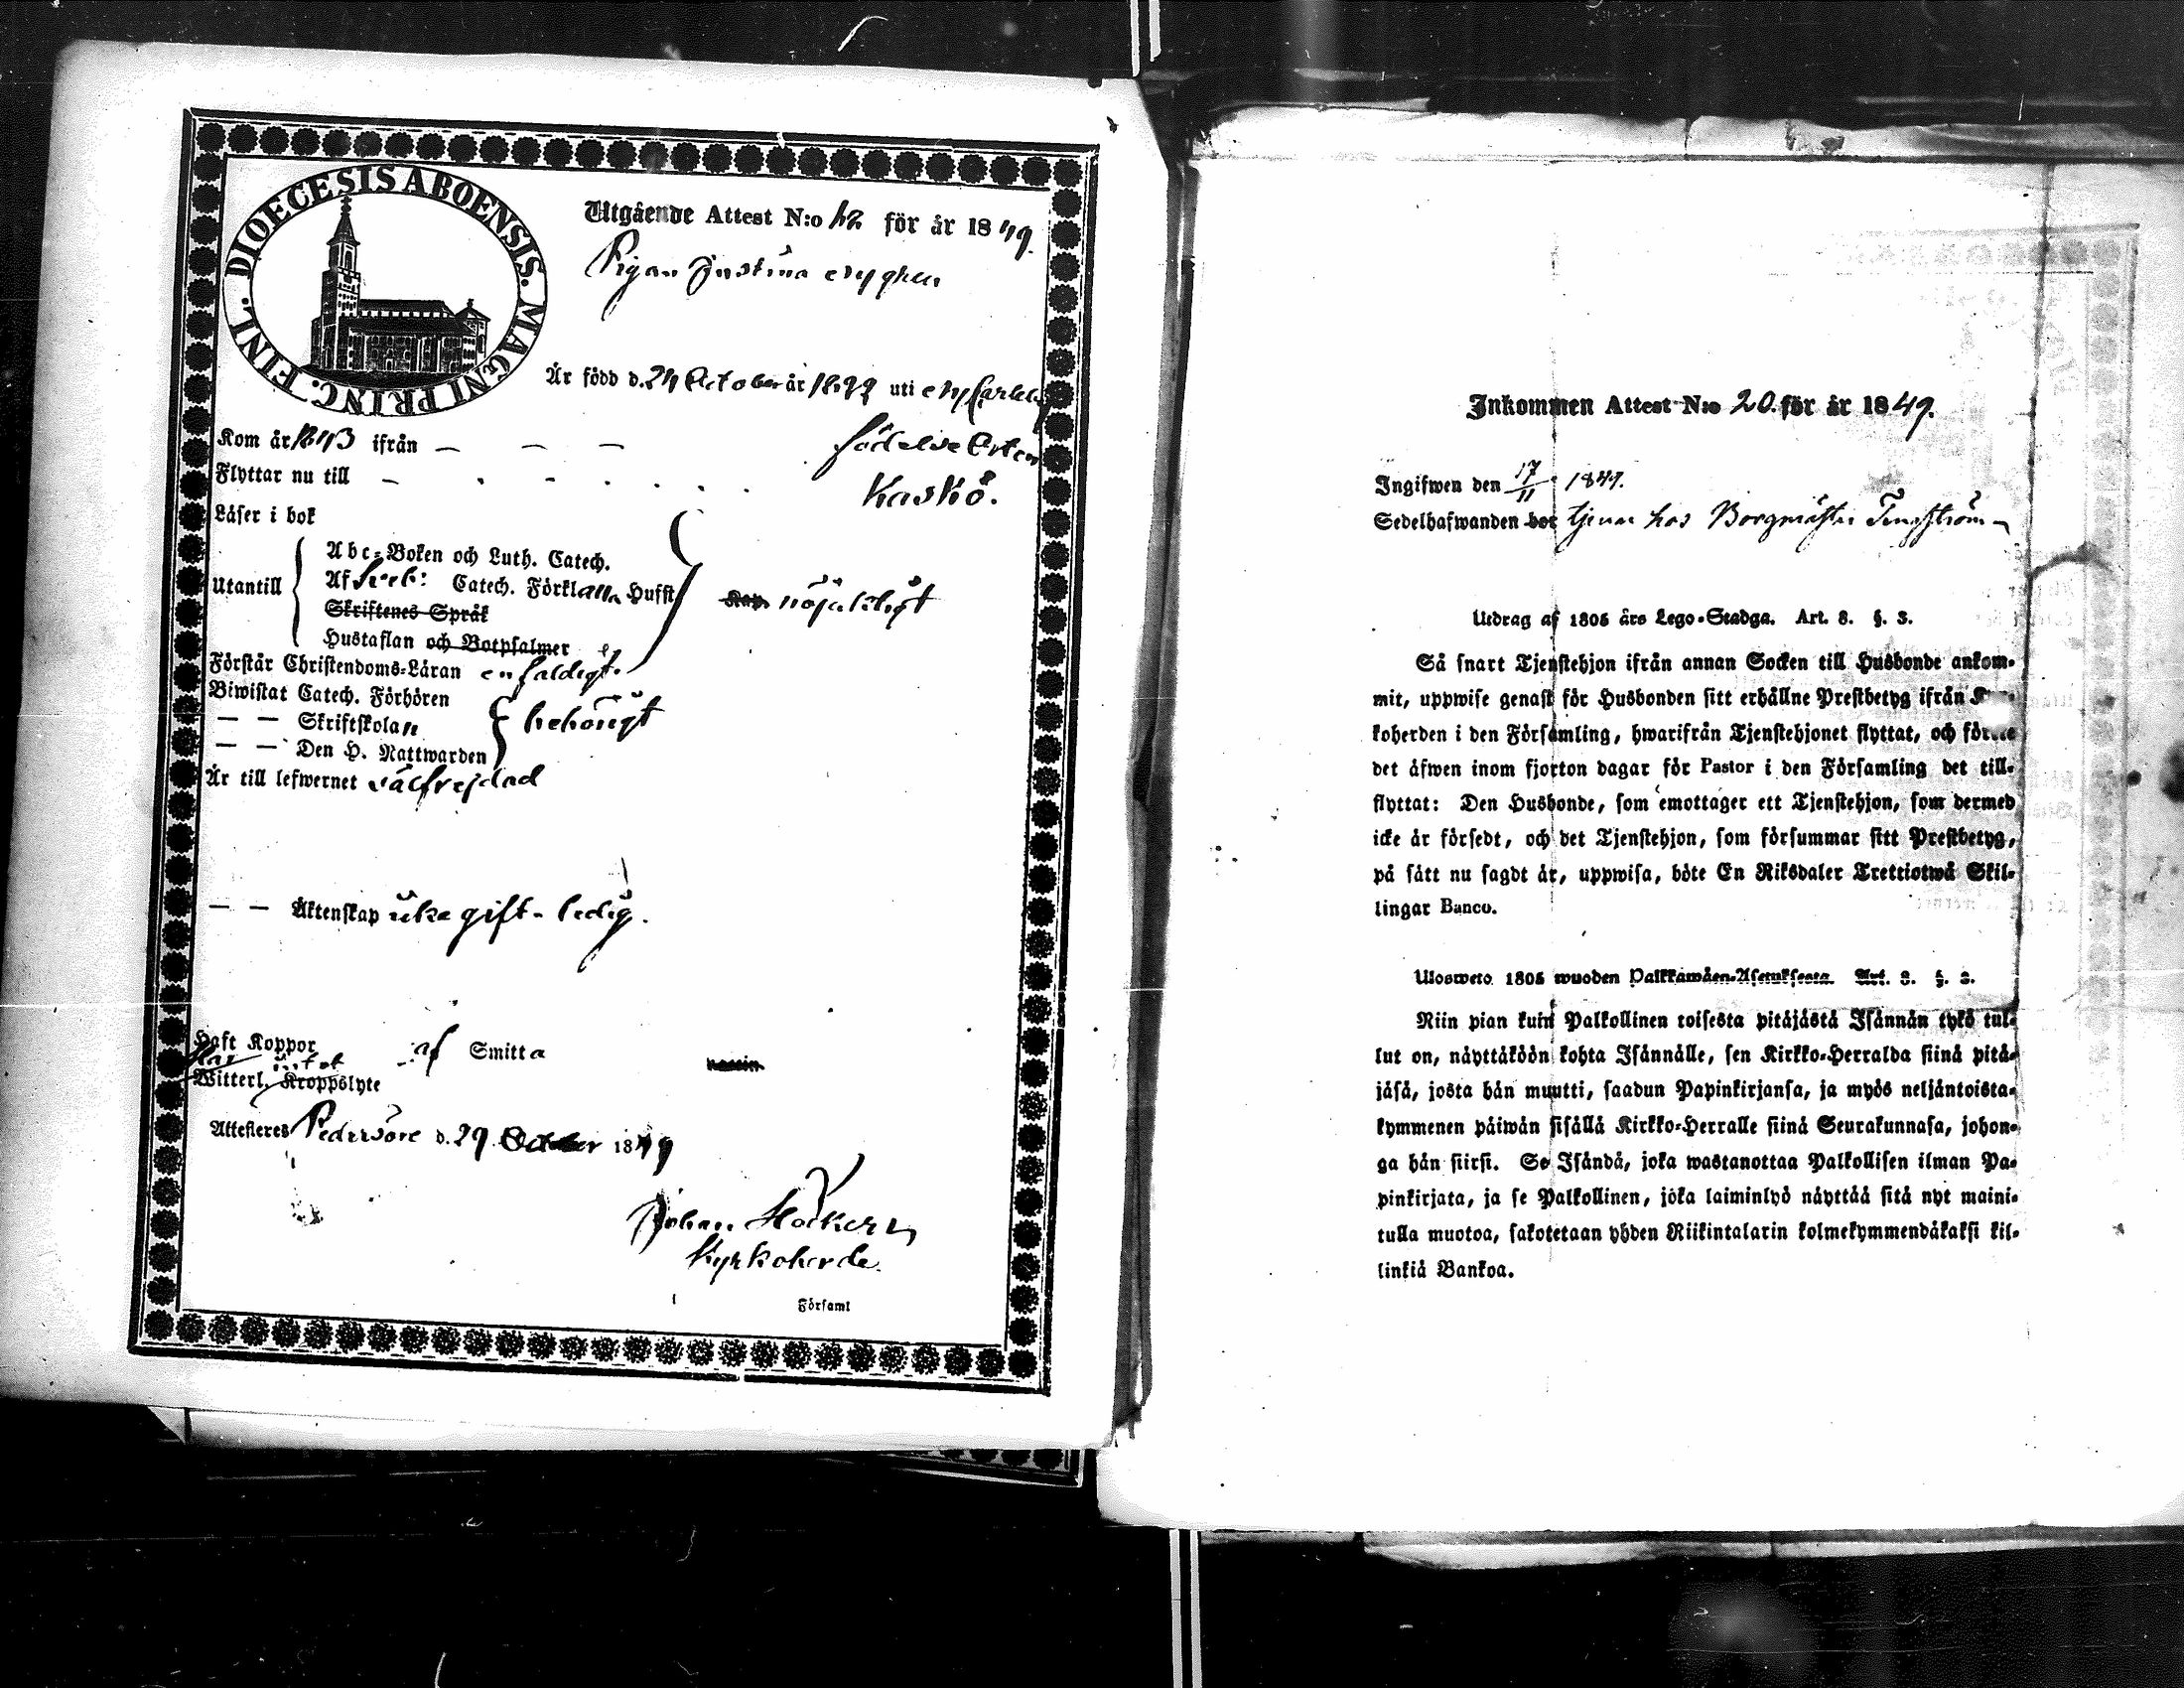 DIOECESIS ABOENSIS. MAGNI PRINC. FINL.
Utgående Attest N:o för år 1849.
Pigan Justina
Är född d. 24 October år uti
Kom år 1843 ifrån — — — födelse Orten
Flyttar nu till — Kaskö.
Läser i bok
Utantill
Abc-Boken och Luth. Catech.
Af Sveb: Catech. Förkl Husst
Skriftenes Språk
Hustaflan och Botpsalmer
nöjaktigt
Förstår Christendoms-Läran enfaldigt.
Biwistat Catech. Förhören
— — Skriftskolan
— — Den H. Nattwarden
behörigt
Är till lefwernet välfrejdad
— — Äktenskap icke gift - ledig.
Haft Koppor af Smitta
Har intet
Witterl. Kroppslyte
Attesteres Pedersöre d. 29 October 1849
Johan
Kyrkoherde.
Församl
Inkommen Attest N:o 20. för år 1849.
Ingifwen den 17/11 1849.
Sedelhafwanden bor tjenar hos Borgmästar Tengström
Utdrag af 1805 års Lego-Stadga. Art. 8. §. 3.
Så snart Tjenstehjon ifrån annan Socken till Husbonde ankom-
mit, uppwise genast för Husbonden sitt erhållne Prestbetyg ifrån
koherden i den Församling, hwarifrån Tjenstehjonet flyttat, och
det äfwen inom fjorton dagar för Pastor i den Församling det till-
flyttat: Den Husbonde, som emottager ett Tjenstehjon, som dermed
icke är försedt, och det Tjenstehjon, som försummar sitt Prestbetyg,
på sätt nu sagdt är, uppwisa, böte En Riksdaler Trettiotwå Skil-
lingar Banco.
Ulosweto 1805 wuoden Palkkawäen-Asetuksesta. Art. 8. §. 3.
Niin pian kuin Palkollinen toisesta pitäjästä Isännän tykö tul-
lut on, näyttäköön kohta Isännälle, sen Kirkko-Herralda siinä pitä-
jäsä, josta hän muutti, saadun Papinkirjansa, ja myös neljäntoista-
kymmenen päiwän sisällä Kirkko-Herralle siinä Seurakunnasa, johon-
ga hän siirsi. Se Isändä, joka wastanottaa Palkollisen ilman Pa-
pinkirjata, ja se Palkollinen, joka laiminlyö näyttää sitä nyt maini-
tulla muotoa, sakotetaan yhden Riikintalarin kolmekymmendäkaksi kil-
linkiä Bankoa.